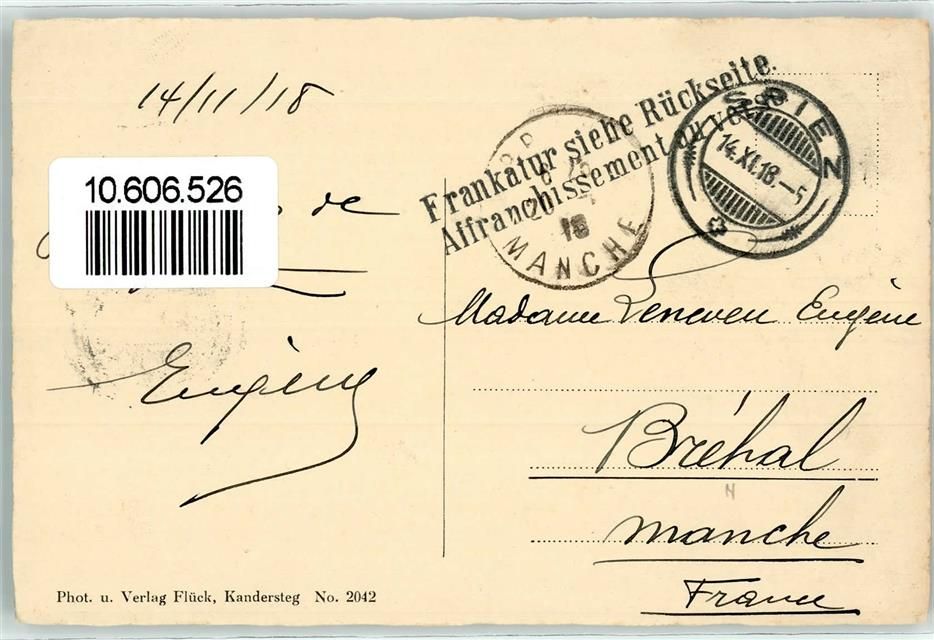 14/11/18
10.606.526
de
Eugène
Frankatur siehe Rückseite.
Affranchissement au verso
SPIEZ
14.XI.18.–5
MANCHE
18
Madame Leneveu Eugène
Bréhal
manche
France
Phot. u. Verlag Flück, Kandersteg No. 2042